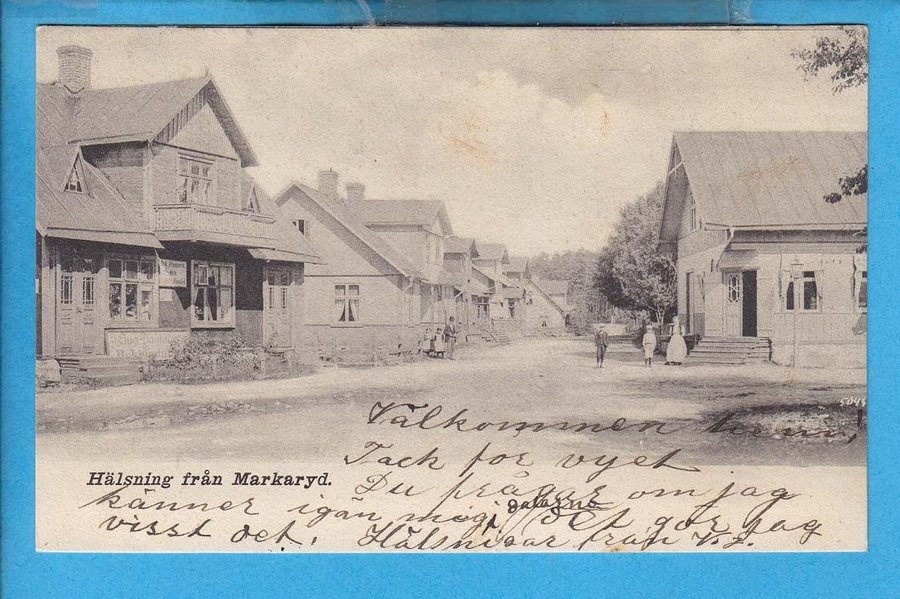 5048
Välkommen hem!
Tack för vyet
Hälsning från Markaryd.
Du frågar om jag
känner igän mig i dalarne Det gör jag
visst det. Hälsningar från V.S.